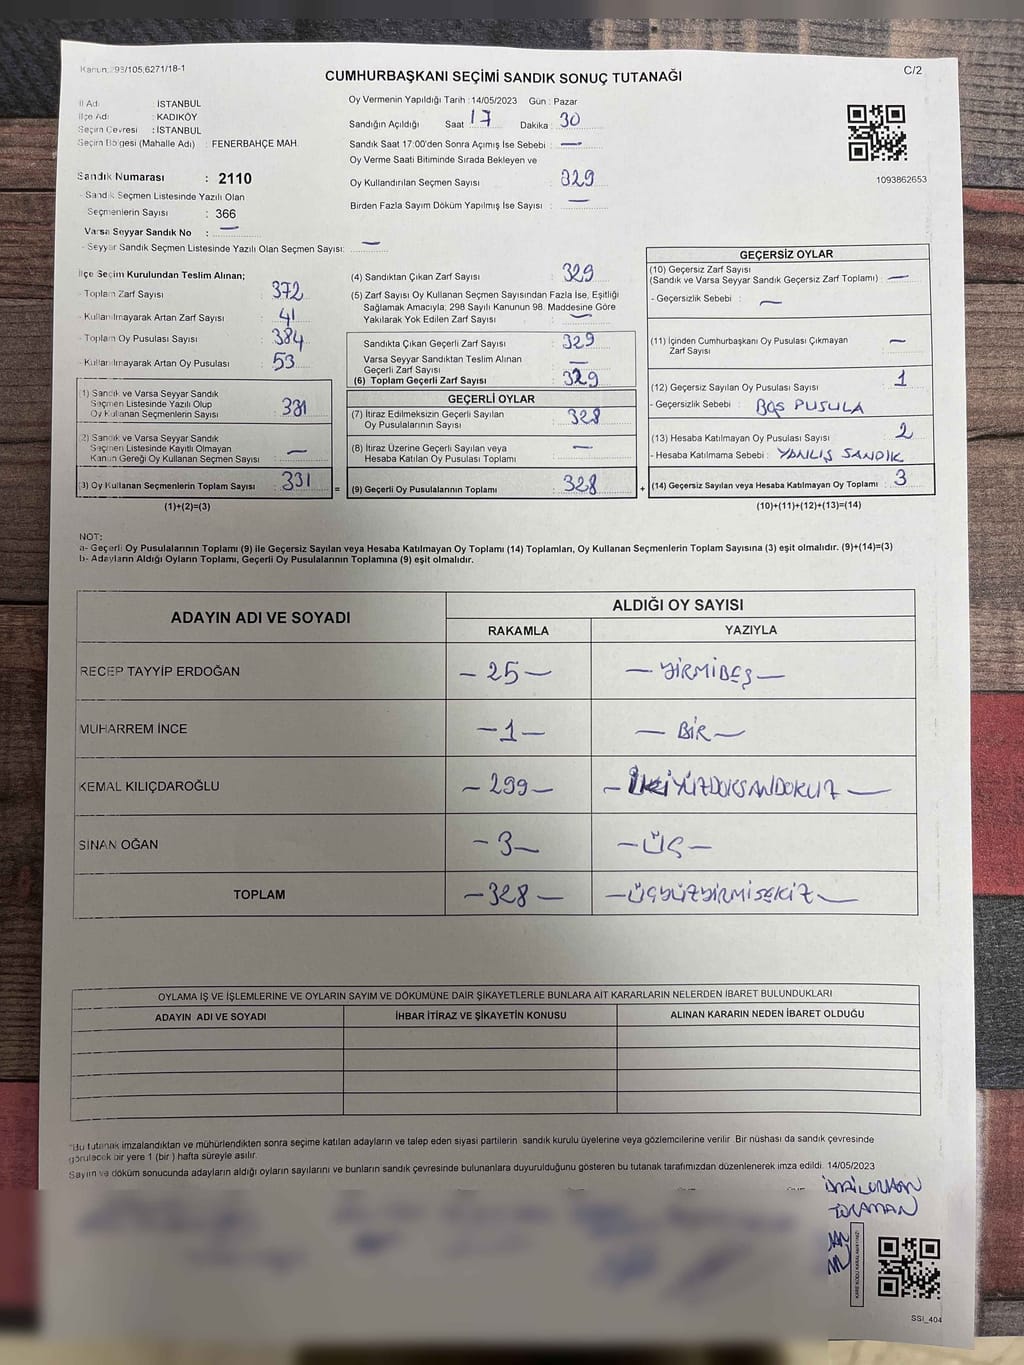 Kanun: 298/105,6271/18-1
CUMHURBAŞKANI SEÇİMİ SANDIK SONUÇ TUTANAĞI
C/2
İl Adı : İSTANBUL
İlçe Adı : KADIKÖY
Seçim Çevresi : İSTANBUL
Seçim Bölgesi (Mahalle Adı) : FENERBAHÇE MAH.
Sandık Numarası : 2110
- Sandık Seçmen Listesinde Yazılı Olan
Seçmenlerin Sayısı : 366
Varsa Seyyar Sandık No : —
- Seyyar Sandık Seçmen Listesinde Yazılı Olan Seçmen Sayısı: —
Oy Vermenin Yapıldığı Tarih : 14/05/2023 Gün : Pazar
Sandığın Açıldığı Saat 17 Dakika : 30
Sandık Saat 17:00'den Sonra Açımış İse Sebebi : —
Oy Verme Saati Bitiminde Sırada Bekleyen ve
Oy Kullandırılan Seçmen Sayısı : 329
Birden Fazla Sayım Döküm Yapılmış İse Sayısı : —
1093862653
İlçe Seçim Kurulundan Teslim Alınan;
- Toplam Zarf Sayısı : 372
- Kullanılmayarak Artan Zarf Sayısı : 41
- Toplam Oy Pusulası Sayısı : 384
- Kullanılmayarak Artan Oy Pusulası : 53
(1) Sandık ve Varsa Seyyar Sandık
Seçmen Listesinde Yazılı Olup
Oy Kullanan Seçmenlerin Sayısı : 331
(2) Sandık ve Varsa Seyyar Sandık
Seçmen Listesinde Kayıtlı Olmayan
Kanun Gereği Oy Kullanan Seçmen Sayısı : —
(3) Oy Kullanan Seçmenlerin Toplam Sayısı : 331
(1)+(2)=(3)
(4) Sandıktan Çıkan Zarf Sayısı : 329
(5) Zarf Sayısı Oy Kullanan Seçmen Sayısından Fazla İse, Eşitliği
Sağlamak Amacıyla; 298 Sayılı Kanunun 98. Maddesine Göre
Yakılarak Yok Edilen Zarf Sayısı : —
Sandıkta Çıkan Geçerli Zarf Sayısı : 329
Varsa Seyyar Sandıktan Teslim Alınan
Geçerli Zarf Sayısı : —
(6) Toplam Geçerli Zarf Sayısı : 329
GEÇERLİ OYLAR
(7) İtiraz Edilmeksizin Geçerli Sayılan
Oy Pusulalarının Sayısı : 328
(8) İtiraz Üzerine Geçerli Sayılan veya
Hesaba Katılan Oy Pusulası Toplamı : —
= (9) Geçerli Oy Pusulalarının Toplamı : 328 +
GEÇERSİZ OYLAR
(10) Geçersiz Zarf Sayısı
(Sandık ve Varsa Seyyar Sandık Geçersiz Zarf Toplamı) : —
- Geçersizlik Sebebi : —
(11) İçinden Cumhurbaşkanı Oy Pusulası Çıkmayan
Zarf Sayısı : —
(12) Geçersiz Sayılan Oy Pusulası Sayısı : 1
- Geçersizlik Sebebi : BOŞ PUSULA
(13) Hesaba Katılmayan Oy Pusulası Sayısı : 2
- Hesaba Katılmama Sebebi : YANLIŞ SANDIK
(14) Geçersiz Sayılan veya Hesaba Katılmayan Oy Toplamı : 3
(10)+(11)+(12)+(13)=(14)
NOT:
a- Geçerli Oy Pusulalarının Toplamı (9) ile Geçersiz Sayılan veya Hesaba Katılmayan Oy Toplamı (14) Toplamları, Oy Kullanan Seçmenlerin Toplam Sayısına (3) eşit olmalıdır. (9)+(14)=(3)
b- Adayların Aldığı Oyların Toplamı, Geçerli Oy Pusulalarının Toplamına (9) eşit olmalıdır.
ADAYIN ADI VE SOYADI
ALDIĞI OY SAYISI
RAKAMLA YAZIYLA
RECEP TAYYİP ERDOĞAN — 25 — — YİRMİBEŞ —
MUHARREM İNCE — 1 — — BİR —
KEMAL KILIÇDAROĞLU — 299 — — İKİYÜZDOKSANDOKUZ —
SİNAN OĞAN — 3 — — ÜÇ —
TOPLAM — 328 — — ÜÇYÜZYİRMİSEKİZ —
OYLAMA İŞ VE İŞLEMLERİNE VE OYLARIN SAYIM VE DÖKÜMÜNE DAİR ŞİKAYETLERLE BUNLARA AİT KARARLARIN NELERDEN İBARET BULUNDUKLARI
ADAYIN ADI VE SOYADI İHBAR İTİRAZ VE ŞİKAYETİN KONUSU ALINAN KARARIN NEDEN İBARET OLDUĞU
*Bu tutanak imzalandıktan ve mühürlendikten sonra seçime katılan adayların ve talep eden siyasi partilerin sandık kurulu üyelerine veya gözlemcilerine verilir. Bir nüshası da sandık çevresinde
görülecek bir yere 1 (bir) hafta süreyle asılır.
Sayım ve döküm sonucunda adayların aldığı oyların sayılarını ve bunların sandık çevresinde bulunanlara duyurulduğunu gösteren bu tutanak tarafımızdan düzenlenerek imza edildi. 14/05/2023
SSI_404